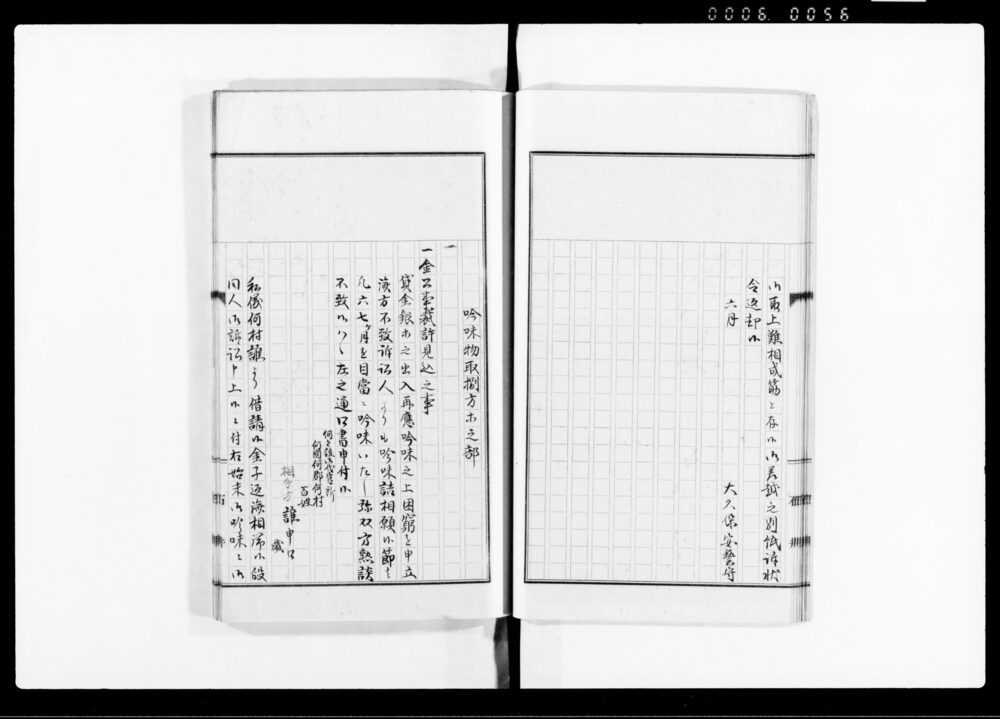 0006 0056
御取上難相成筋と存候御差越之別低訴状
令返却候
六月
大久保安藝守
吟味物取捌方等之部
一
一金公事裁許見込之事
貸金銀等之出入再應吟味之上困窮を申立
濟方不致訴訟人よりも吟味詰相願候節は
凡六七ヶ月を目當ニ吟味いたし弥双方熟談
不致候ハヽ左之通口書申付候
何之誰御代官所
何國何郡何村
百姓
相手方 誰申口
歳
私儀何村誰より借請候金子返濟相滞候段
同人御訴訟申上候ニ付右始末御吟味ニ御